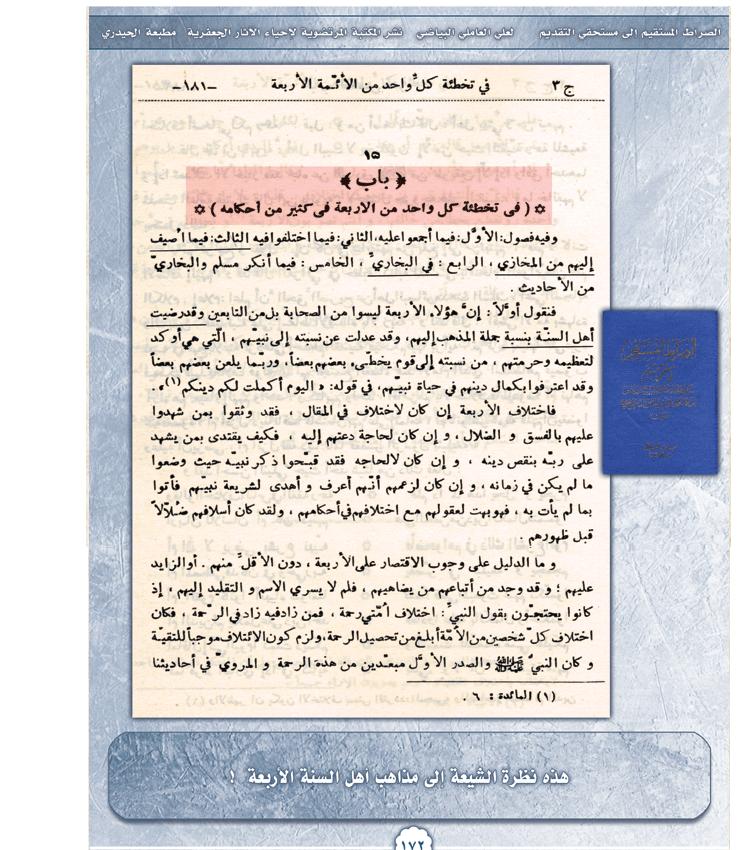 الصراط المستقيم الى مستحقي التقديم لعلي العاملي البياضي نشر المكتبة المرتضوية لإحياء الآثار الجعفرية مطبعة الحيدري
ج ٣ في تخطئة كلّ واحد من الأئمّة الأربعة -١٨١-
١٥
﴿ باب ﴾
✡ ( فى تخطئة كل واحد من الاربعة فى كثير من أحكامه ) ✡
وفيه فصول: الأوّل: فيما أجمعوا عليه، الثاني: فيما اختلفوا فيه الثالث: فيما اُضيف
إليهم من المخازي ، الرابع : في البخاريّ ، الخامس : فيما أنكر مسلم والبخاريّ
من الأحاديث .
فنقول أوّلاً : إنّ هؤلاء الأربعة ليسوا من الصحابة بل من التابعين وقد رضيت
أهل السنّة بنسبة جملة المذهب إليهم، وقد عدلت عن نسبته إلى نبيّهم ، الّتي هي أوكد
لتعظيمه وحرمتهم ، من نسبته إلى قوم يخطّىء بعضهم بعضاً، وربّما يلعن بعضهم بعضاً
وقد اعترفوا بكمال دينهم في حياة نبيّهم، في قوله: « اليوم أكملت لكم دينكم (١) » .
فاختلاف الأربعة إن كان لاختلاف في المقال ، فقد وثقوا بمن شهدوا
عليهم بالفسق و الضلال ، و إن كان لحاجة دعتهم إليه ، فكيف يقتدى بمن يشهد
على ربّه بنقص دينه ، و إن كان لالحاجه فقد قبّحوا ذكر نبيّه حيث وضعوا
ما لم يكن في زمانه ، و إن كان لزعمهم أنّهم أعرف و أهدى لشريعة نبيّهم فأتوا
بما لم يأت به ، فهو بهت لعقولهم مع اختلافهم في أحكامهم ، ولقد كان أسلافهم ضُلّالاً
قبل ظهورهم .
و ما الدليل على وجوب الاقتصار على الأربعة ، دون الأقلّ منهم . أو الزايد
عليهم ؛ و قد وجد من أتباعهم من يضاهيهم ، فلم لا يسري الاسم و التقليد إليهم ، إذ
كانوا يحتجّون بقول النبيّ : اختلاف اُمّتي رحمة ، فمن زاد فيه زاد في الرّحمة ، فكان
اختلاف كلّ شخصين من الاُمّة أبلغ من تحصيل الرحمة، ولزم كون الائتلاف موجباً للتقيّة
و كان النبيّ ﷺ والصدر الأوّل مبعدين من هذه الرحمة و المرويّ في أحاديثنا
(١) المائدة : ٦ .
هذه نظرة الشيعة إلى مذاهب أهل السنة الأربعة !
١٧٢